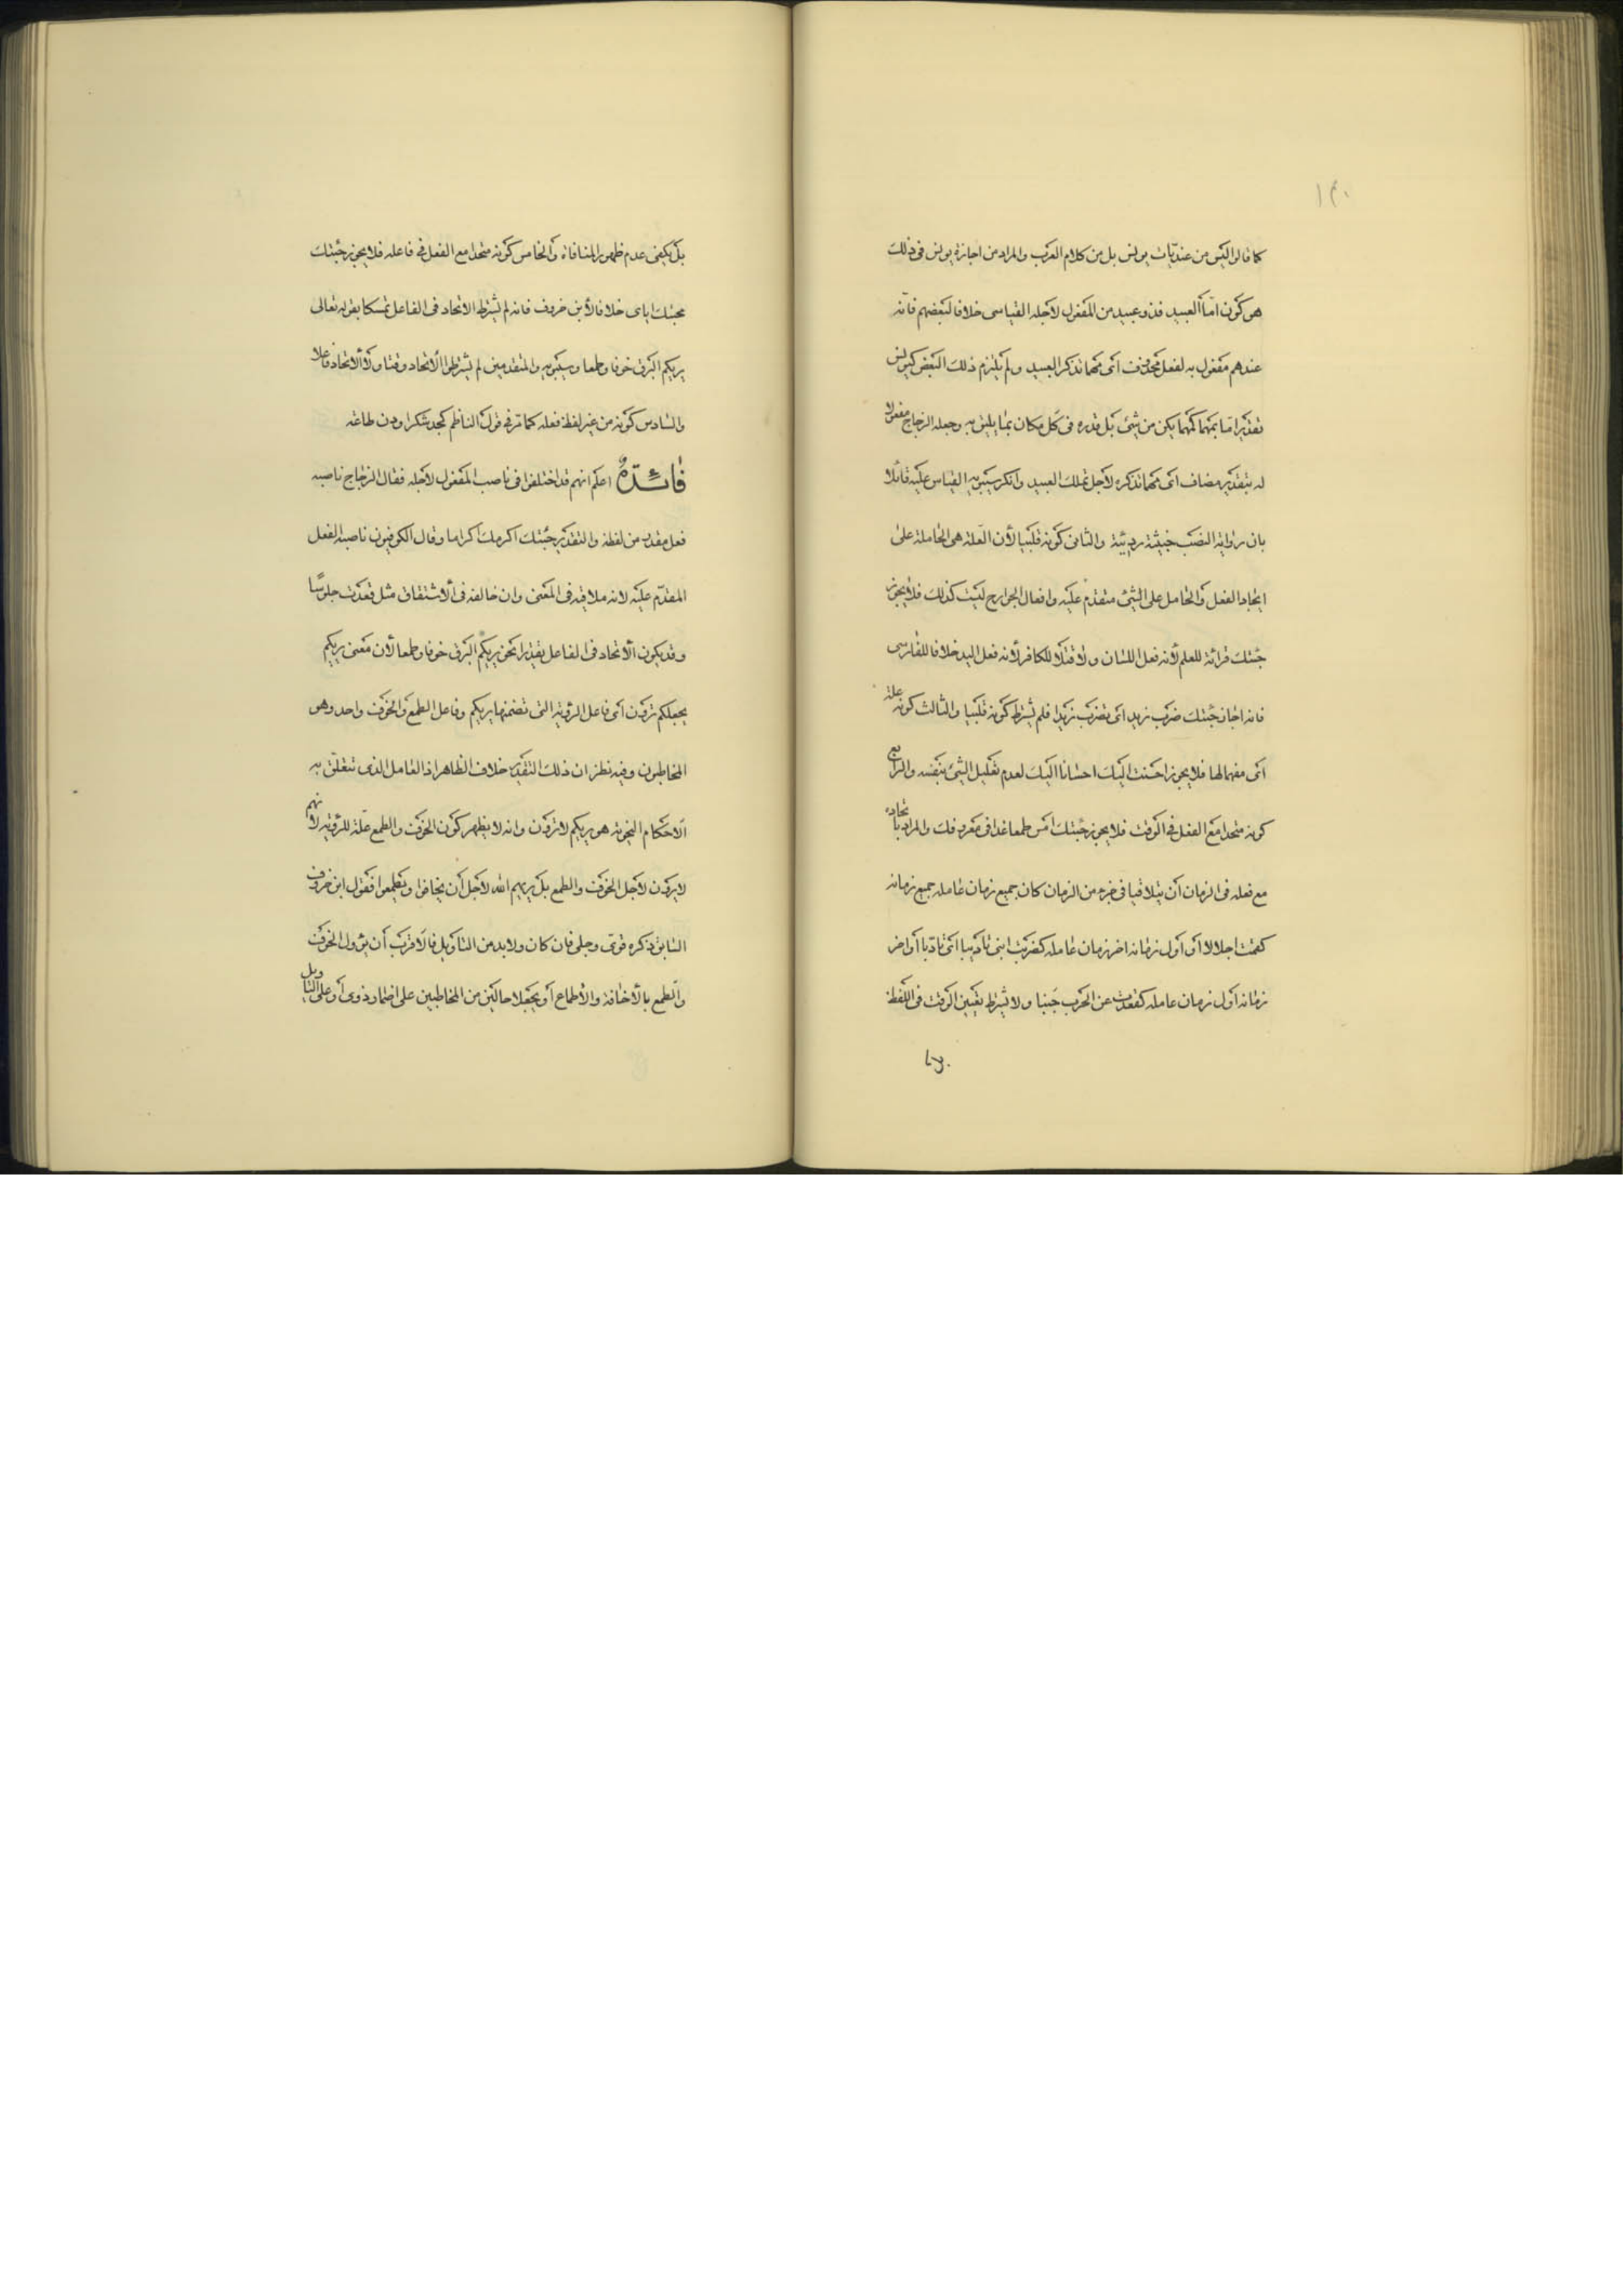 ١٣٠
كما قالوا ليس من عنديات يونس بل من كلام العرب والمراد من اجازة يونس فى ذلك
هو كون امّا العبيد فذو عبيد من المفعول لاجله القياسى خلافا لبعضهم فانّه
عندهم مفعول به لفعل محذوف اى مهما تذكر العبيد ولم يلتزم ذلك البعض كيونس
تقدير امّا بمهما يكن من شئ بل قدره فى كل مكان بما يليق به وجعله الزجاج مفعولا
له بتقدير مضاف اى مهما تذكره لاجل تملك العبيد وانكر سيبويه القياس عليه قائلا
بان رواية النصب خبيثة رديئة والثانى كونه قلبيا لأن العلة هى الحاملة على
ايجاد الفعل والحامل على الشئ متقدم عليه وافعال الجوارح ليست كذلك فلا يجوز
جئتك قرائة للعلم لأنه فعل اللسان ولا قتلا للكافر لأنه فعل اليد خلافا للفارسى
فانه اجاز جئتك ضرب زيد اى تضرب زيدا فلم يشترط كونه قلبيا والثالث كونه علة
اى مفهما لها فلا يجوز احسنت اليك احسانا اليك لعدم تعليل الشئ بنفسه والرابع
كونه متحدا مع الفعل فى الوقت فلا يجوز جئتك امس طمعا غدا فى معروفك والمراد باتحاده
مع فعله فى الزمان أن يتلاقيا فى جزء من الزمان كان جميع زمان عامله جميع زمانه
كقمت اجلالا أو أول زمانه اخر زمان عامله كضربت ابنى تأديبا اى تادّبا أو اخر
زمانه أول زمان عامله كقعدت عن الحرب جبنا ولا يشترط تعيين الوقت فى اللفظ
بل
بل يكفى عدم ظهور المنافاة والخامس كونه متحدا مع الفعل فى فاعله فلا يجوز جئتك
محبتك اياى خلافا لأبن خروف فانه لم يشترط الاتحاد فى الفاعل تمسكا بقوله تعالى
يريكم البرق خوفا وطمعا وسيبويه والمتقدمين لم يشترطوا الأتحاد وقتا ولا الاتحاد فاعلا
والسادس كونه من غير لفظ فعله كما مر فى قول الناظم كجد شكرا ودن طاعة
فائدة اعلم انهم قد اختلفوا فى ناصب المفعول لاجله فقال الزجاج ناصبه
فعل مقدر من لفظه والتقدير جئتك اكرمك اكراما وقال الكوفيون ناصبه الفعل
المقدّم عليه لانه ملاقيه فى المعنى وان خالفه فى الأشتقاق مثل قعدت جلوسًا
وقد يكون الأتحاد فى الفاعل تقديرا نحو يريكم البرق خوفا وطمعا لأن معنى يريكم
يجعلكم ترون اى فاعل الرؤية التى تضمنها يريكم وفاعل الطمع والخوف واحد وهو
المخاطبون وفيه نظر ان ذلك التقدير خلاف الظاهر اذ العامل الذى تتعلق به
الاحكام النحوية هو يريكم لا ترون وانه لا يظهر كون الخوف والطمع علة للرؤية لانهم
لا يرون لاجل الخوف والطمع بل يريهم الله لاجل أن يخافوا ويطمعوا فقول ابن خروف
السابق ذكره قوىّ وجلى فان كان ولا بد من التأويل فالاقرب أن يئول الخوف
والطمع بالأخافة والاطماع أو يجعلا حالين من المخاطبين على اضمار ذوى أو على التأويل